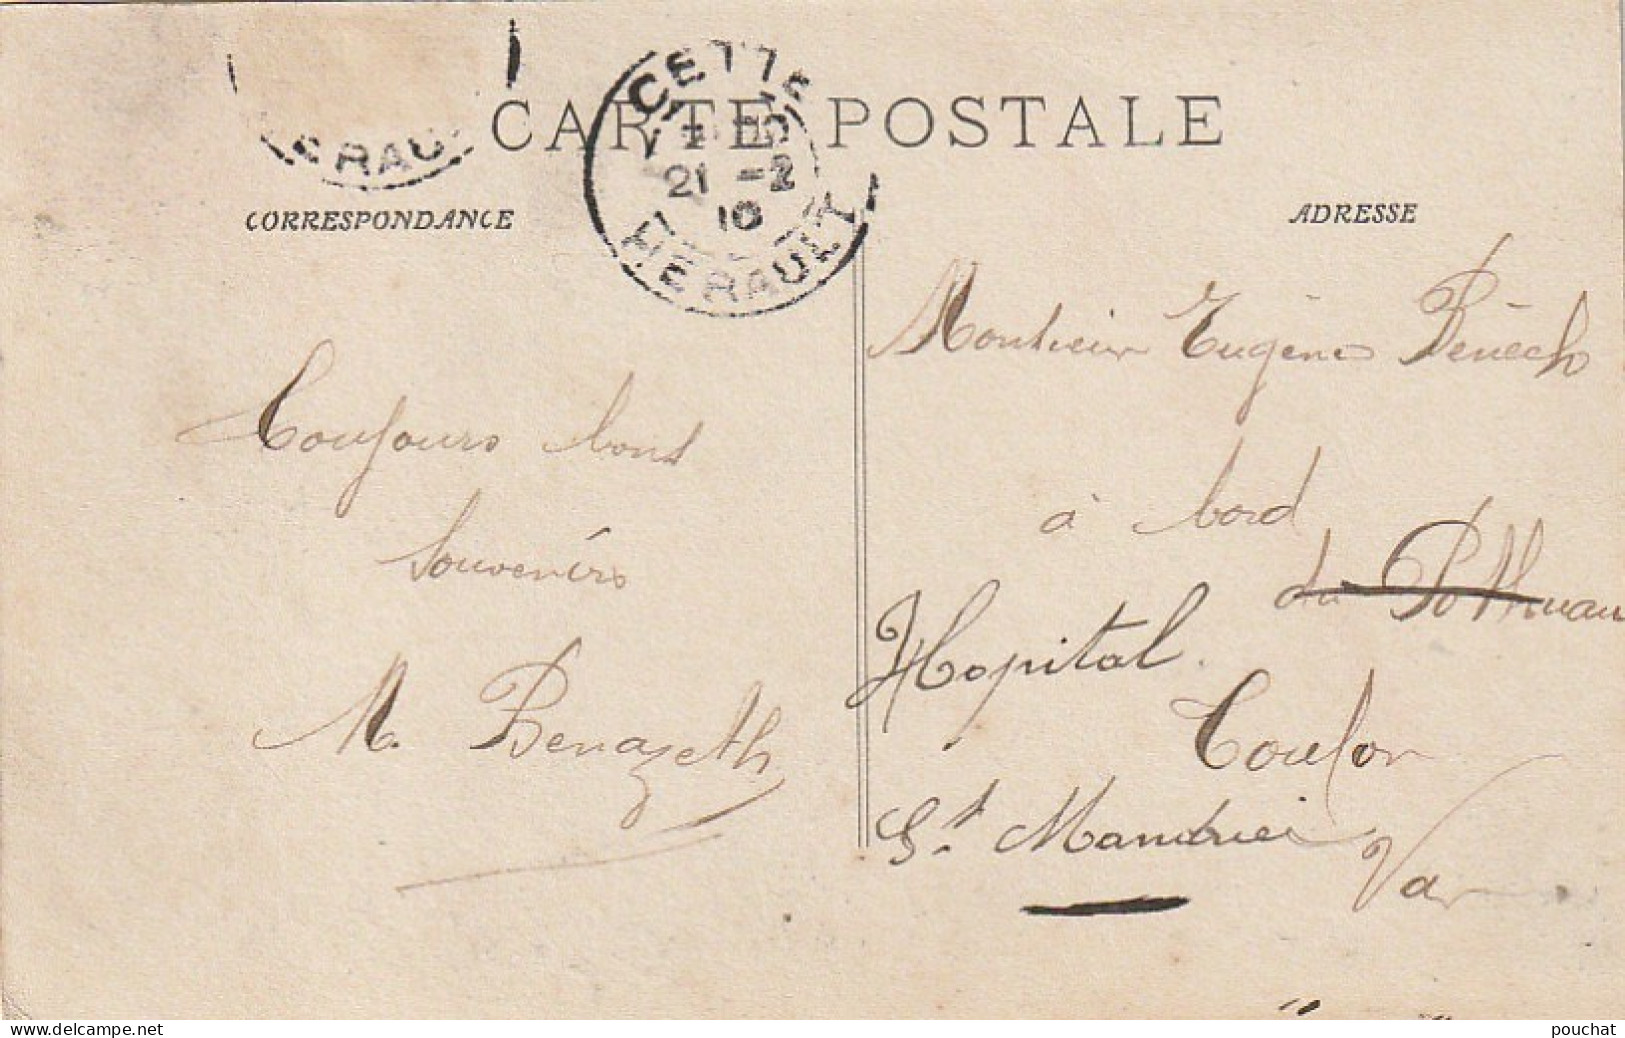 CARTE POSTALE
CETTE
21 -2
10
HERAULT
ERAU
CORRESPONDANCE
Toujours bons
souvenirs
M. Benazeth
ADRESSE
Monsieur Eugène Bénech
à bord
du Pothuau
Hopital.
Toulon
St. Mandrier
Var
www.delcampe.net
pouchat